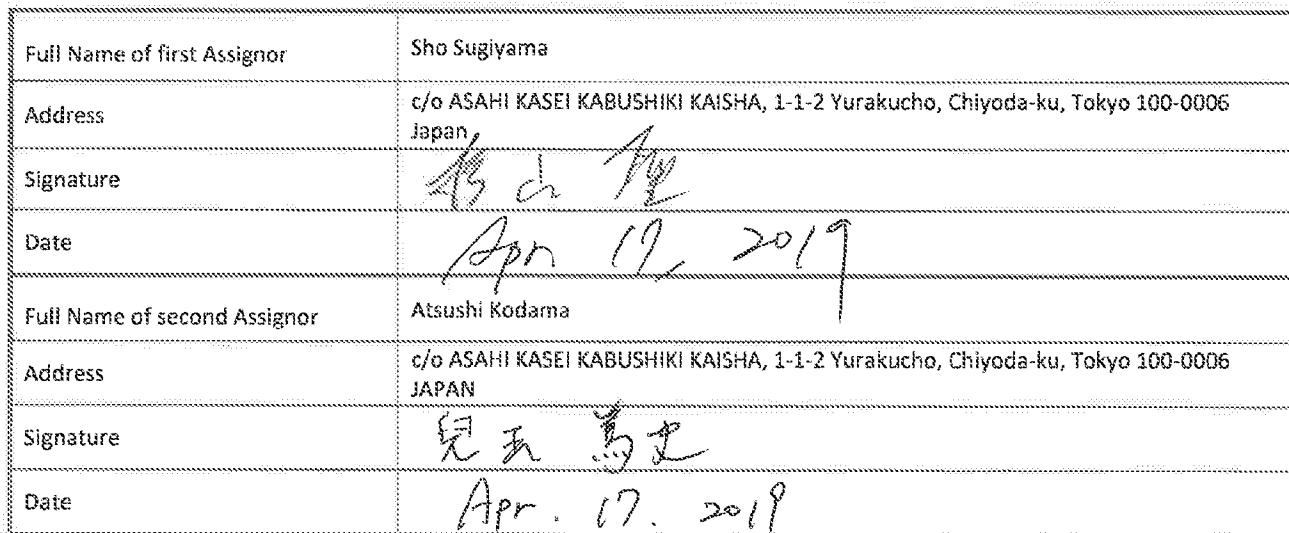 Full Name of first Assignor Sho Sugiyama
Address c/o ASAHI KASEI KABUSHIKI KAISHA, 1-1-2 Yurakucho, Chiyoda-ku, Tokyo 100-0006
Japan
Signature 杉山 聖
Date Apr 17, 2019
Full Name of second Assignor Atsushi Kodama
Address c/o ASAHI KASEI KABUSHIKI KAISHA, 1-1-2 Yurakucho, Chiyoda-ku, Tokyo 100-0006
JAPAN
Signature 兒玉 篤史
Date Apr. 17. 2019